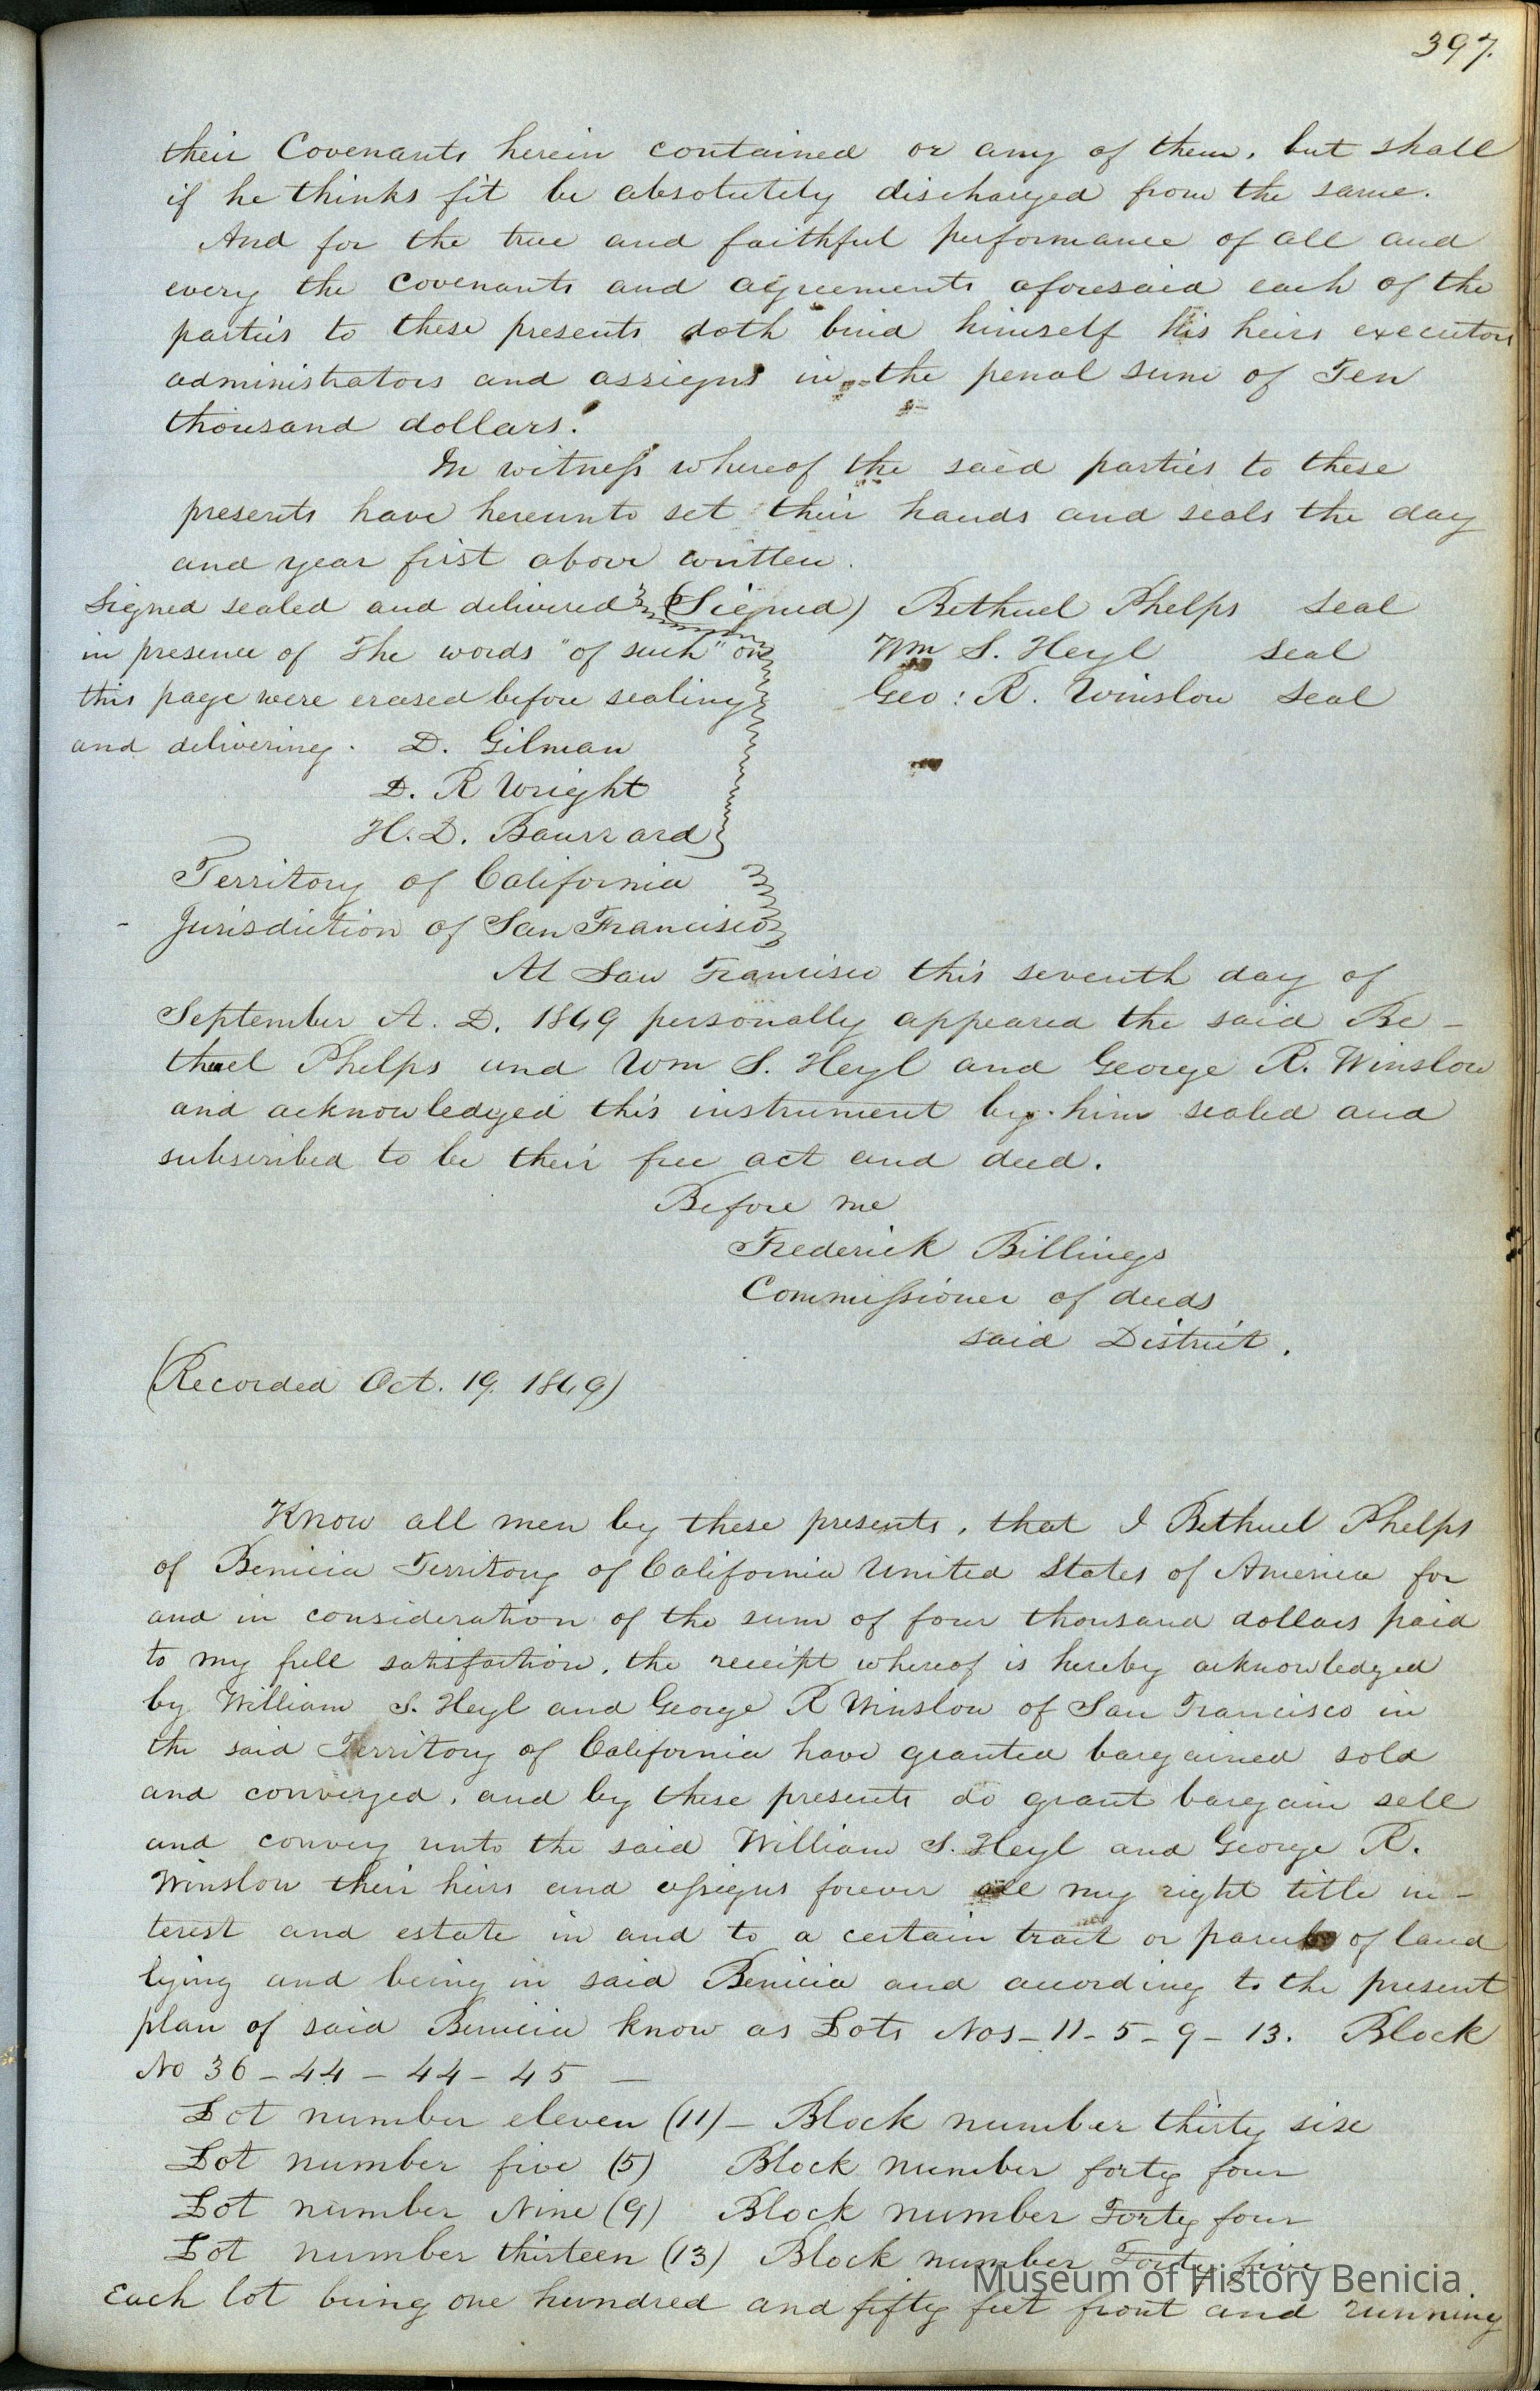 397.
their Covenants herein contained or any of them, but shall
if he thinks fit be absolutely discharged from the same.
And for the true and faithful performance of all and
every the Covenants and agreements aforesaid each of the
parties to these presents doth bind himself his heirs executors
administrators and assigns in the penal sum of Ten
thousand dollars.
In witness whereof the said parties to these
presents have hereunto set their hands and seals the day
and year first above written.
Signed sealed and delivered (Signed) Bethuel Phelps Seal
in presence of The words "of such" on Wm S. Heyl Seal
this page were erased before sealing Geo: R. Winslow Seal
and delivering. D. Gilman
D. R Wright
H. D.
Territory of California
Jurisdiction of San Francisco
At San Francisco this seventh day of
September A. D. 1849 personally appeared the said Be-
thuel Phelps and Wm S. Heyl and George R. Winslow
and acknowledged this instrument by him sealed and
subscribed to be their free act and deed.
Before me
Frederick Billings
Commissioner of deeds
said District.
(Recorded Oct. 19. 1849)
Know all men by these presents, that I Bethuel Phelps
of Benicia Territory of California United States of America for
and in consideration of the sum of four thousand dollars paid
to my full satisfaction, the receipt whereof is hereby acknowledged
by William S. Heyl and George R Winslow of San Francisco in
the said Territory of California have granted bargained sold
and conveyed, and by these presents do grant bargain sell
and convey unto the said William S. Heyl and George R.
Winslow their heirs and assigns forever all my right title in-
terest and estate in and to a certain tract or of land
lying and being in said Benicia and according to the present
plan of said Benicia know as Lots Nos-11-5-9-13. Block
No 36-44-44-45 —
Lot number eleven (11)- Block number thirty six
Lot number five (5) Block number forty four
Lot number Nine (9) Block number Forty four
Lot number thirteen (13) Block number Forty five
Each lot being one hundred and fifty feet front and running
Museum of History Benicia